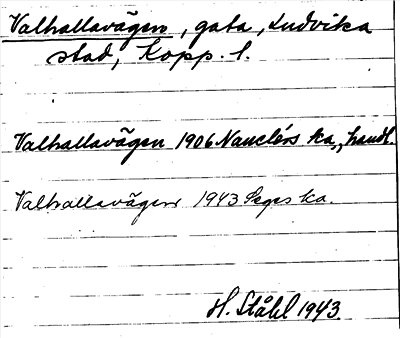 Valhallavägen, gata, Ludvika
stad, Kopp. l.
Valhallavägen 1906 Nanclérs ka,, handl.
Valhallavägen 1943 Segs ka.
H. Ståhl 1943